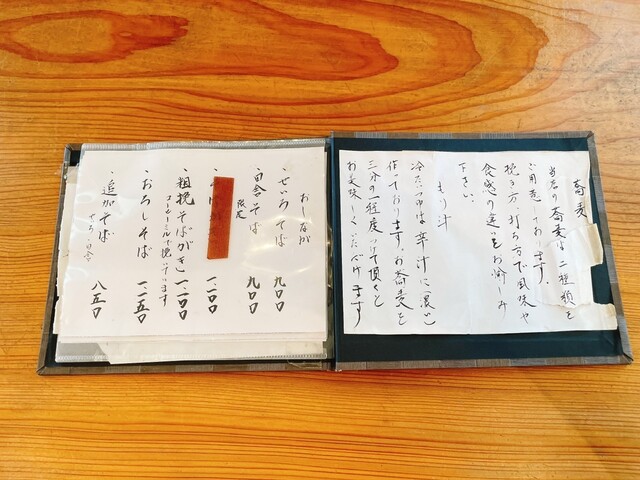 蕎麦
当店の蕎麦は二種類を
ご用意しております。
挽き方、打ち方で風味や
食感の違いをお愉しみ
下さい。
もり汁
冷たいつゆは辛汁に(濃い)
作っております。お蕎麦を
三分の一程度つけて頂くと
お美味しくいただけます
おしながき
・せいろそば 九〇〇
・田舎そば 限定 九〇〇
一、一〇〇
・粗挽そばがき 一、二〇〇
コーヒーミルで挽いています
・おろしそば 一、二五〇
・追加そば 八五〇
せいろ・田舎